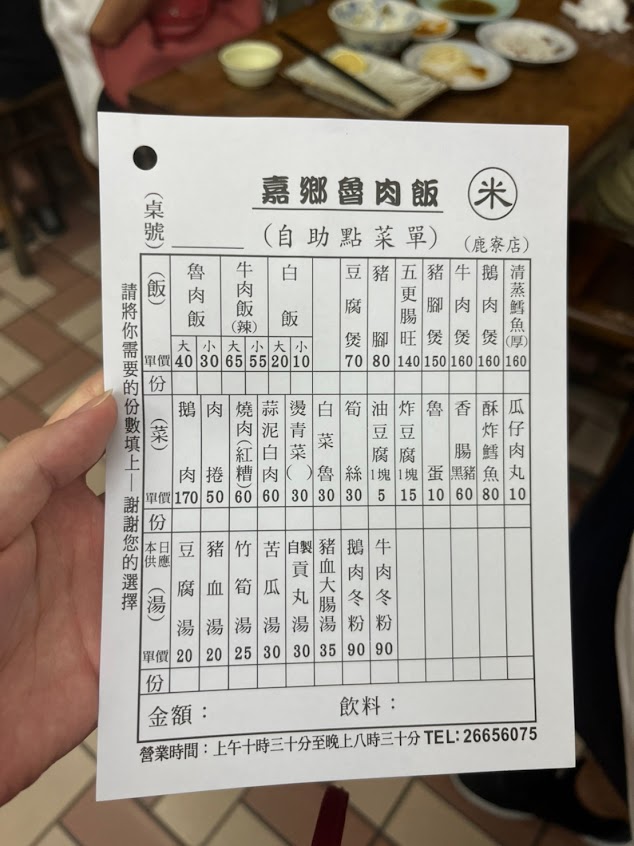 嘉鄉魯肉飯 米
(自助點菜單) (鹿寮店)
(桌號)
請將你需要的份數填上—謝謝您的選擇
(飯) 魯肉飯 牛肉飯(辣) 白飯 豆腐煲 豬腳 五更腸旺 豬腳煲 牛肉煲 鵝肉煲 清蒸鱈魚(厚)
大 小 大 小 大 小
單價 40 30 65 55 20 10 70 80 140 150 160 160 160
份
(菜) 鵝肉 肉捲 燒肉(紅糟) 蒜泥白肉 燙青菜( ) 白菜魯 筍絲 油豆腐1塊 炸豆腐1塊 魯蛋 香腸黑豬 酥炸鱈魚 瓜仔肉丸
單價 170 50 60 60 30 30 30 5 15 10 60 80 10
份
本日供應(湯) 豆腐湯 豬血湯 竹筍湯 苦瓜湯 自製貢丸湯 豬血大腸湯 鵝肉冬粉 牛肉冬粉
單價 20 20 25 30 30 35 90 90
份
金額： 飲料：
營業時間：上午十時三十分至晚上八時三十分 TEL: 26656075